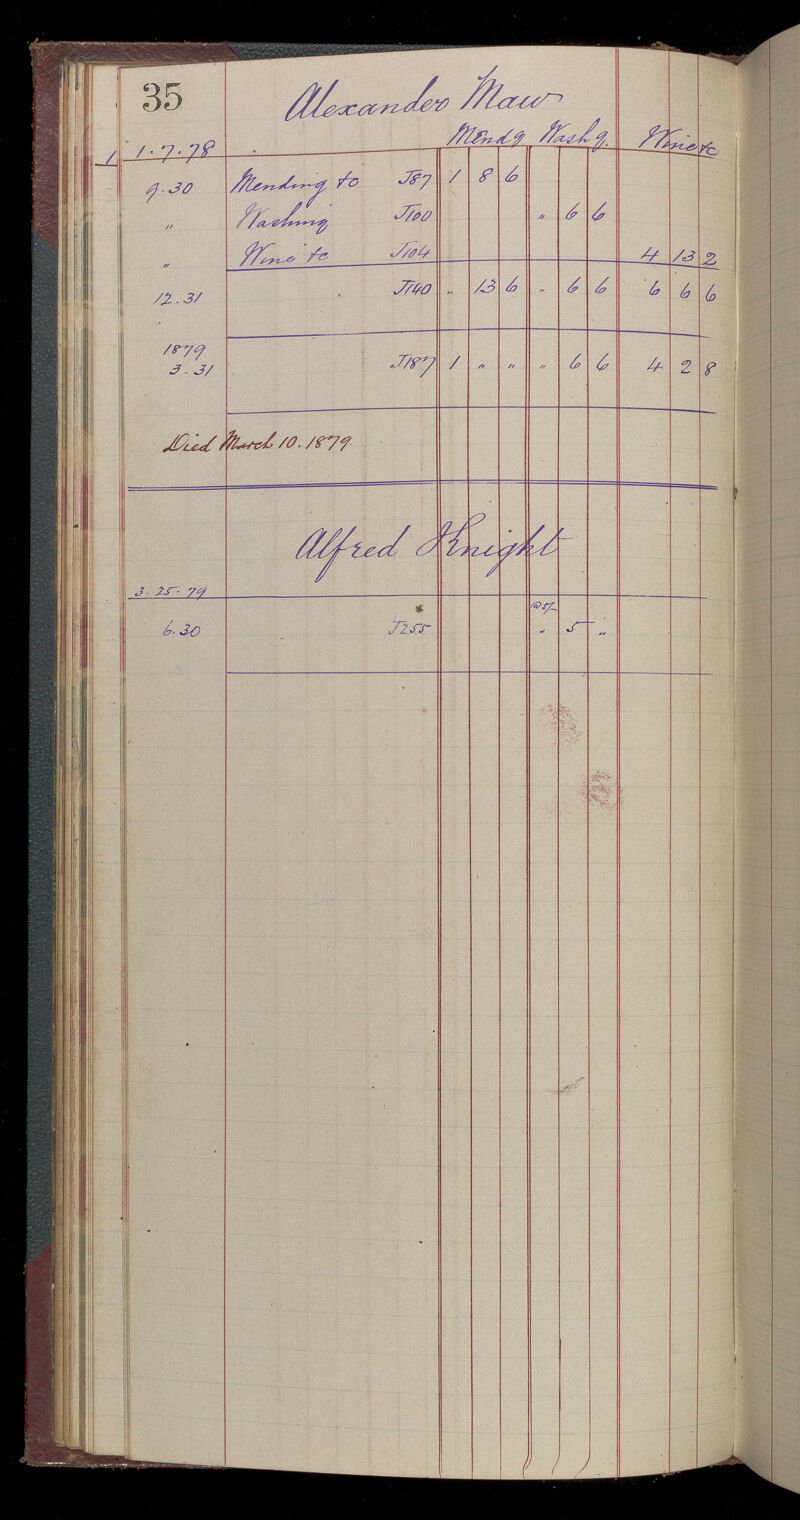 35
Alexander Maw
Mendg Washg. Wine &c
1 1.7.78
9.30 Mending to J87 1 8 6
" Washing J100 " 6 6
" Wine &c J104 4 13 2
12.31 J140 " 13 6 " 6 6 6 6 6
1879
3.31 J187 1 " " " 6 6 4 2 8
Died March 10. 1879.
Alfred Knight
3.25.79
@5/-
6.30 J255 " 5 "